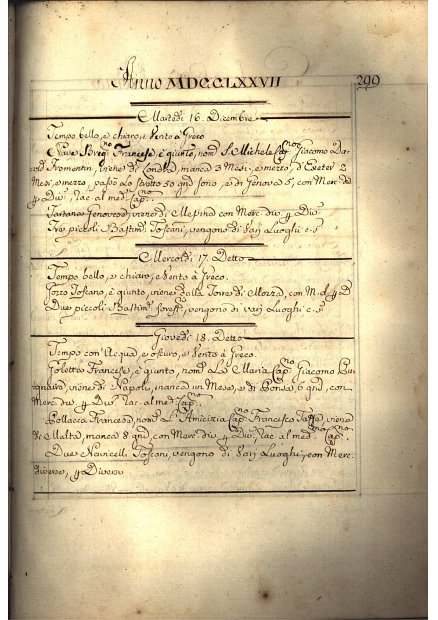 Anno MDCCLXXVII
290
Martedì 16. Dicembre
Tempo bello, e chiaro, e Vento à Greco
Nave Brig.no Francese, è giunto, nom.a S. Michele Cap.no Giacomo Da=
vid Fromentin, viene di Londra, manca 3 Mesi, e mezzo, d'Exeter 2
Mesi, e mezzo, passò lo Stretto 50 gni sono, e di Genova 5, con Merc. de
p Div. rac. al med. Cap.
Tartana Genovese, viene di con Merc. div. p Div.
Tre piccoli Bastim. Toscani, vengono di Varj Luoghi c. s.
Mercoldì 17. Detto
Tempo bello, e chiaro, e Vento à Greco.
Gozzo Toscano, è giunto, viene dalla Torre di Mozza, con M. d. p D
Due piccoli Bastim. vengono di varj Luoghi c. s.
Giovedì 18. Detto
Tempo con Acqua, e oscuro, e Vento à Greco.
Goletta Francese, è giunto, nom.a La Maria Cap.no Giacomo
viene di Napoli, manca un Mese, e di Ponza 6 gni, con
Merc. div. p Div. rac. al med. Cap.no
Pollacca Francese, nom.a L'Amicizia Cap.no Francesco viene
di Malta, manca 8 gni con Merc. div. p Div. rac. al med. Cap.no
Due Navicelli Toscani, vengono di Varj Luoghi, con Merc.
diverse, p Diversi